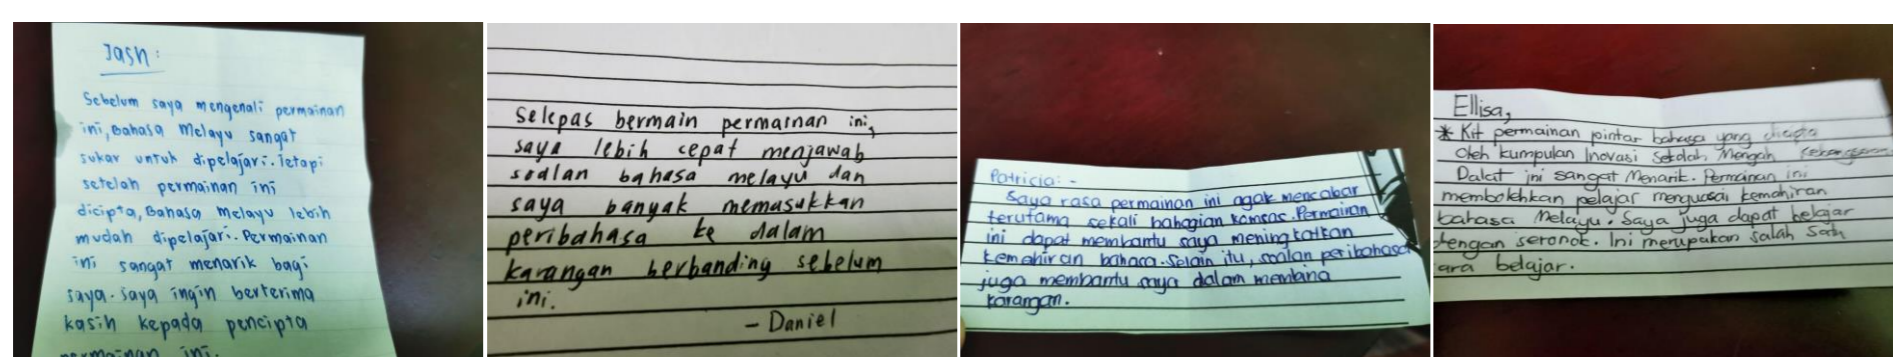 Jash:
Sebelum saya mengenali permainan
ini, Bahasa Melayu sangat
sukar untuk dipelajari. Tetapi
setelah permainan ini
dicipta, Bahasa Melayu lebih
mudah dipelajari. Permainan
ini sangat menarik bagi
saya. Saya ingin berterima
kasih kepada pencipta
permainan ini.
Selepas bermain permainan ini,
saya lebih cepat menjawab
soalan bahasa melayu dan
saya banyak memasukkan
peribahasa ke dalam
karangan berbanding sebelum
ini.
- Daniel
Patricia: -
Saya rasa permainan ini agak mencabar
terutama sekali bahagian komsas. Permainan
ini dapat membantu saya meningkatkan
kemahiran bahasa. Selain itu, soalan peribahasa
juga membantu saya dalam membina
karangan.
Ellisa,
* Kit permainan pintar bahasa yang dicipta
Oleh kumpulan Inovasi Sekolah Mengah Kebangsaan
Dalat ini sangat Menarik. Permainan ini
membolehkan pelajar menguasai kemahiran
bahasa Melayu. Saya juga dapat belajar
dengan seronok. Ini merupakan salah satu
ara belajar.